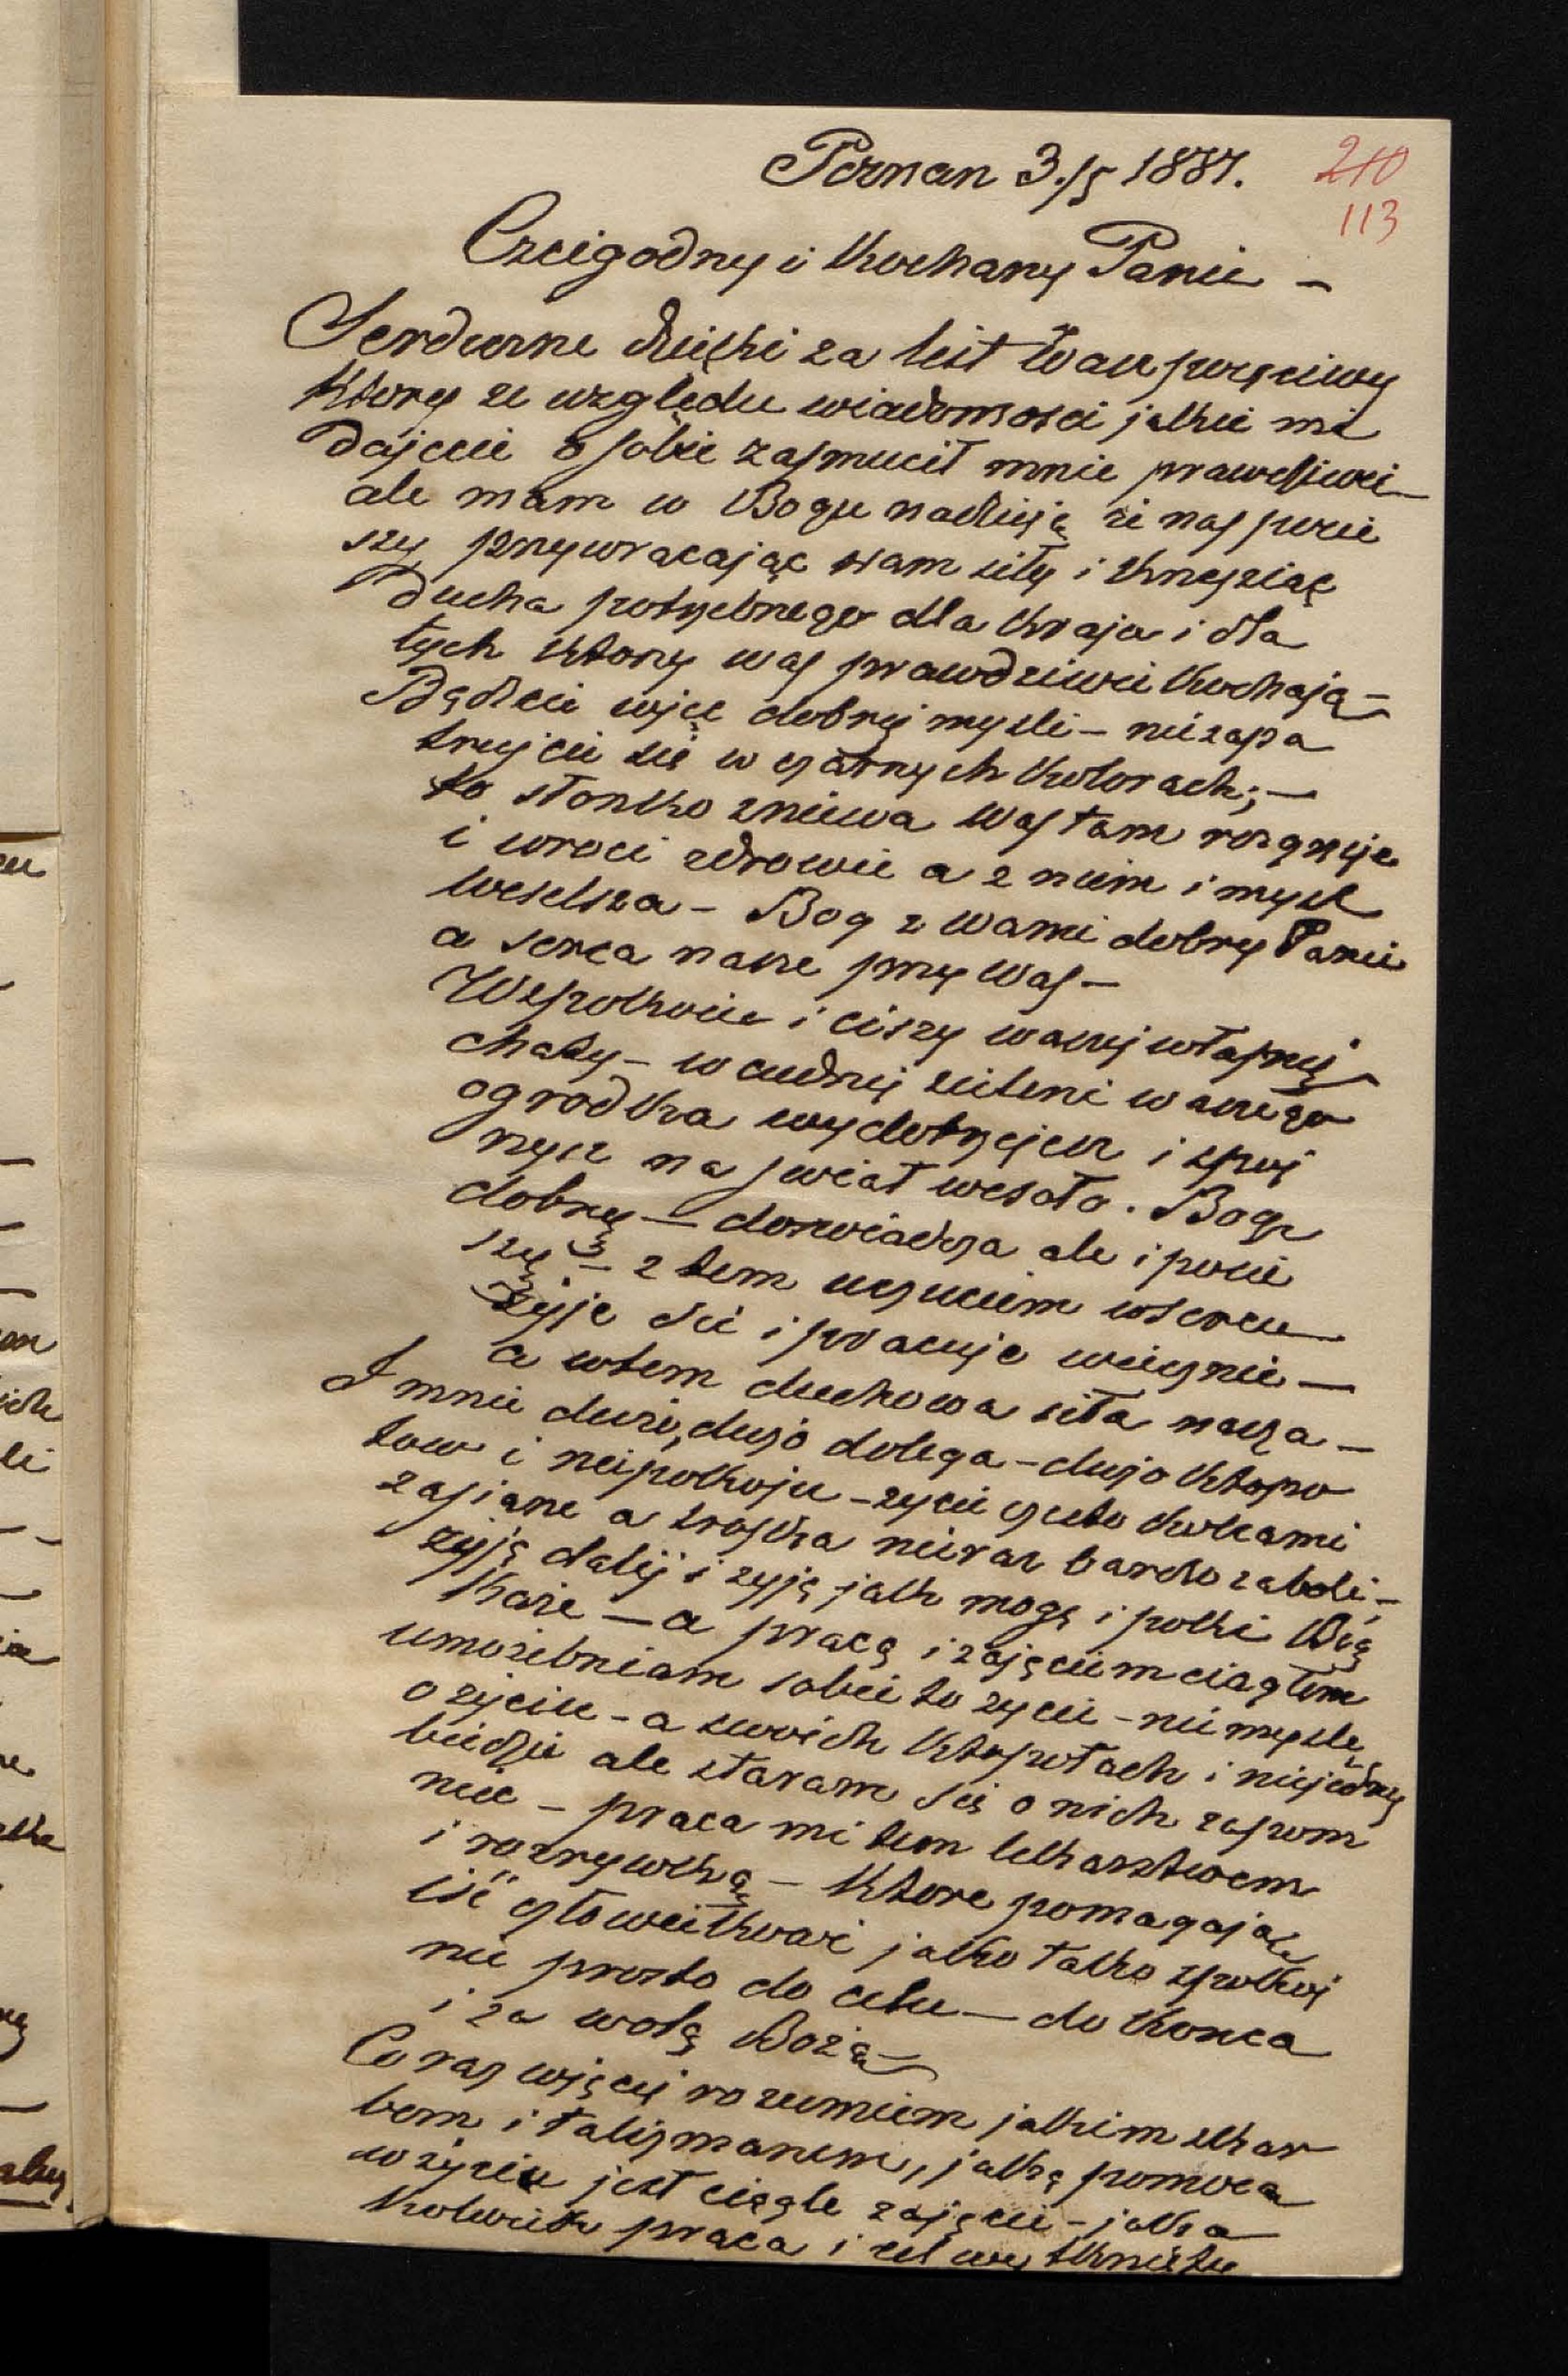 Poznan 3./5 1887.
210
113
Czcigodny i Kochany Panie –
Serdeczne dzięki za list Wasz poczciwy
Ktory ze względu wiadomosci jakie mi
dajecie o sobie zasmucił mnie prawdziwie –
ale mam w Bogu nadzieję ze nas pocie
szy przywracając wam siły i krzepiąc
ducha potrzebnego dla kraju i dla
tych ktorzy was prawdziwie kochają –
Bądzcie więc dobrej mysli – nie zapa
trujcie sie w czarnych kolorach; –
to słonko zniwa was tam rozgrzeje
i wroci zdrowie a z niem i mysl
weselsza – Bog z wami dobry Panie
a serca nasze przy was –
W spokoiu i ciszy waszej własnej
chaty – w cudnej zieleni waszego
ogrodka wydobrzejesz i spoj
rzysz na swiat wesoło. Bog
dobry – doswiadcza ale i pocie
szy – z tem uczuciem w sercu
żyje sie i pracuje wiecznie –
a w tem duchowa siła nasza –
I mnie duzo, duzo dolega – duzo kłopo
tow i niepokoju – zycie gęsto kolcami
zasiane a troska nieraz bardzo zaboli; –
zyję dalej i zyję jak mogę i poki Bóg
każe – a pracą i zajęciem ciągłem
umożebniam sobie to zycie – nie myslę
o życiu – a swoich kłopotach i niejednej
biedzie ale staram się o nich zapom
niec – praca mi tem lekarstwem
i rozrywką – Ktore pomagają
iść człowiekowi jako tako spokoj
nie prosto do celu – do konca
i za wolą Bożą –
Coraz więcej rozumiem jakim skar
bem i talizmanem, jaką pomocą
w życiu jest ciągle zajęcie – jaka
kolwiek praca i cel wytknięty